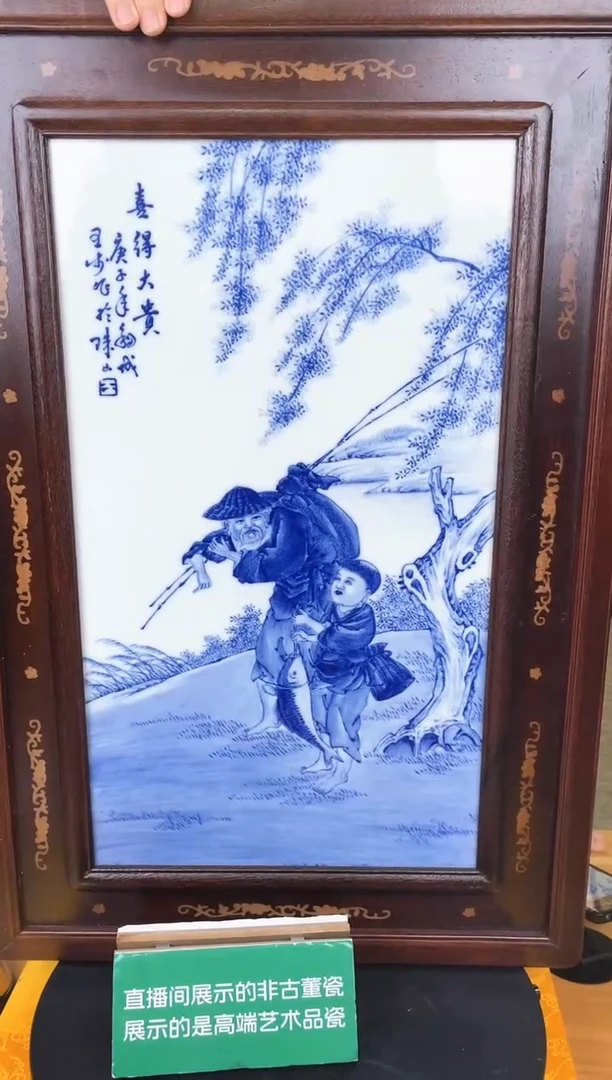 喜得大贵
庚子年 成
王步作於珠山
直播间展示的非古董瓷
展示的是高端艺术品瓷